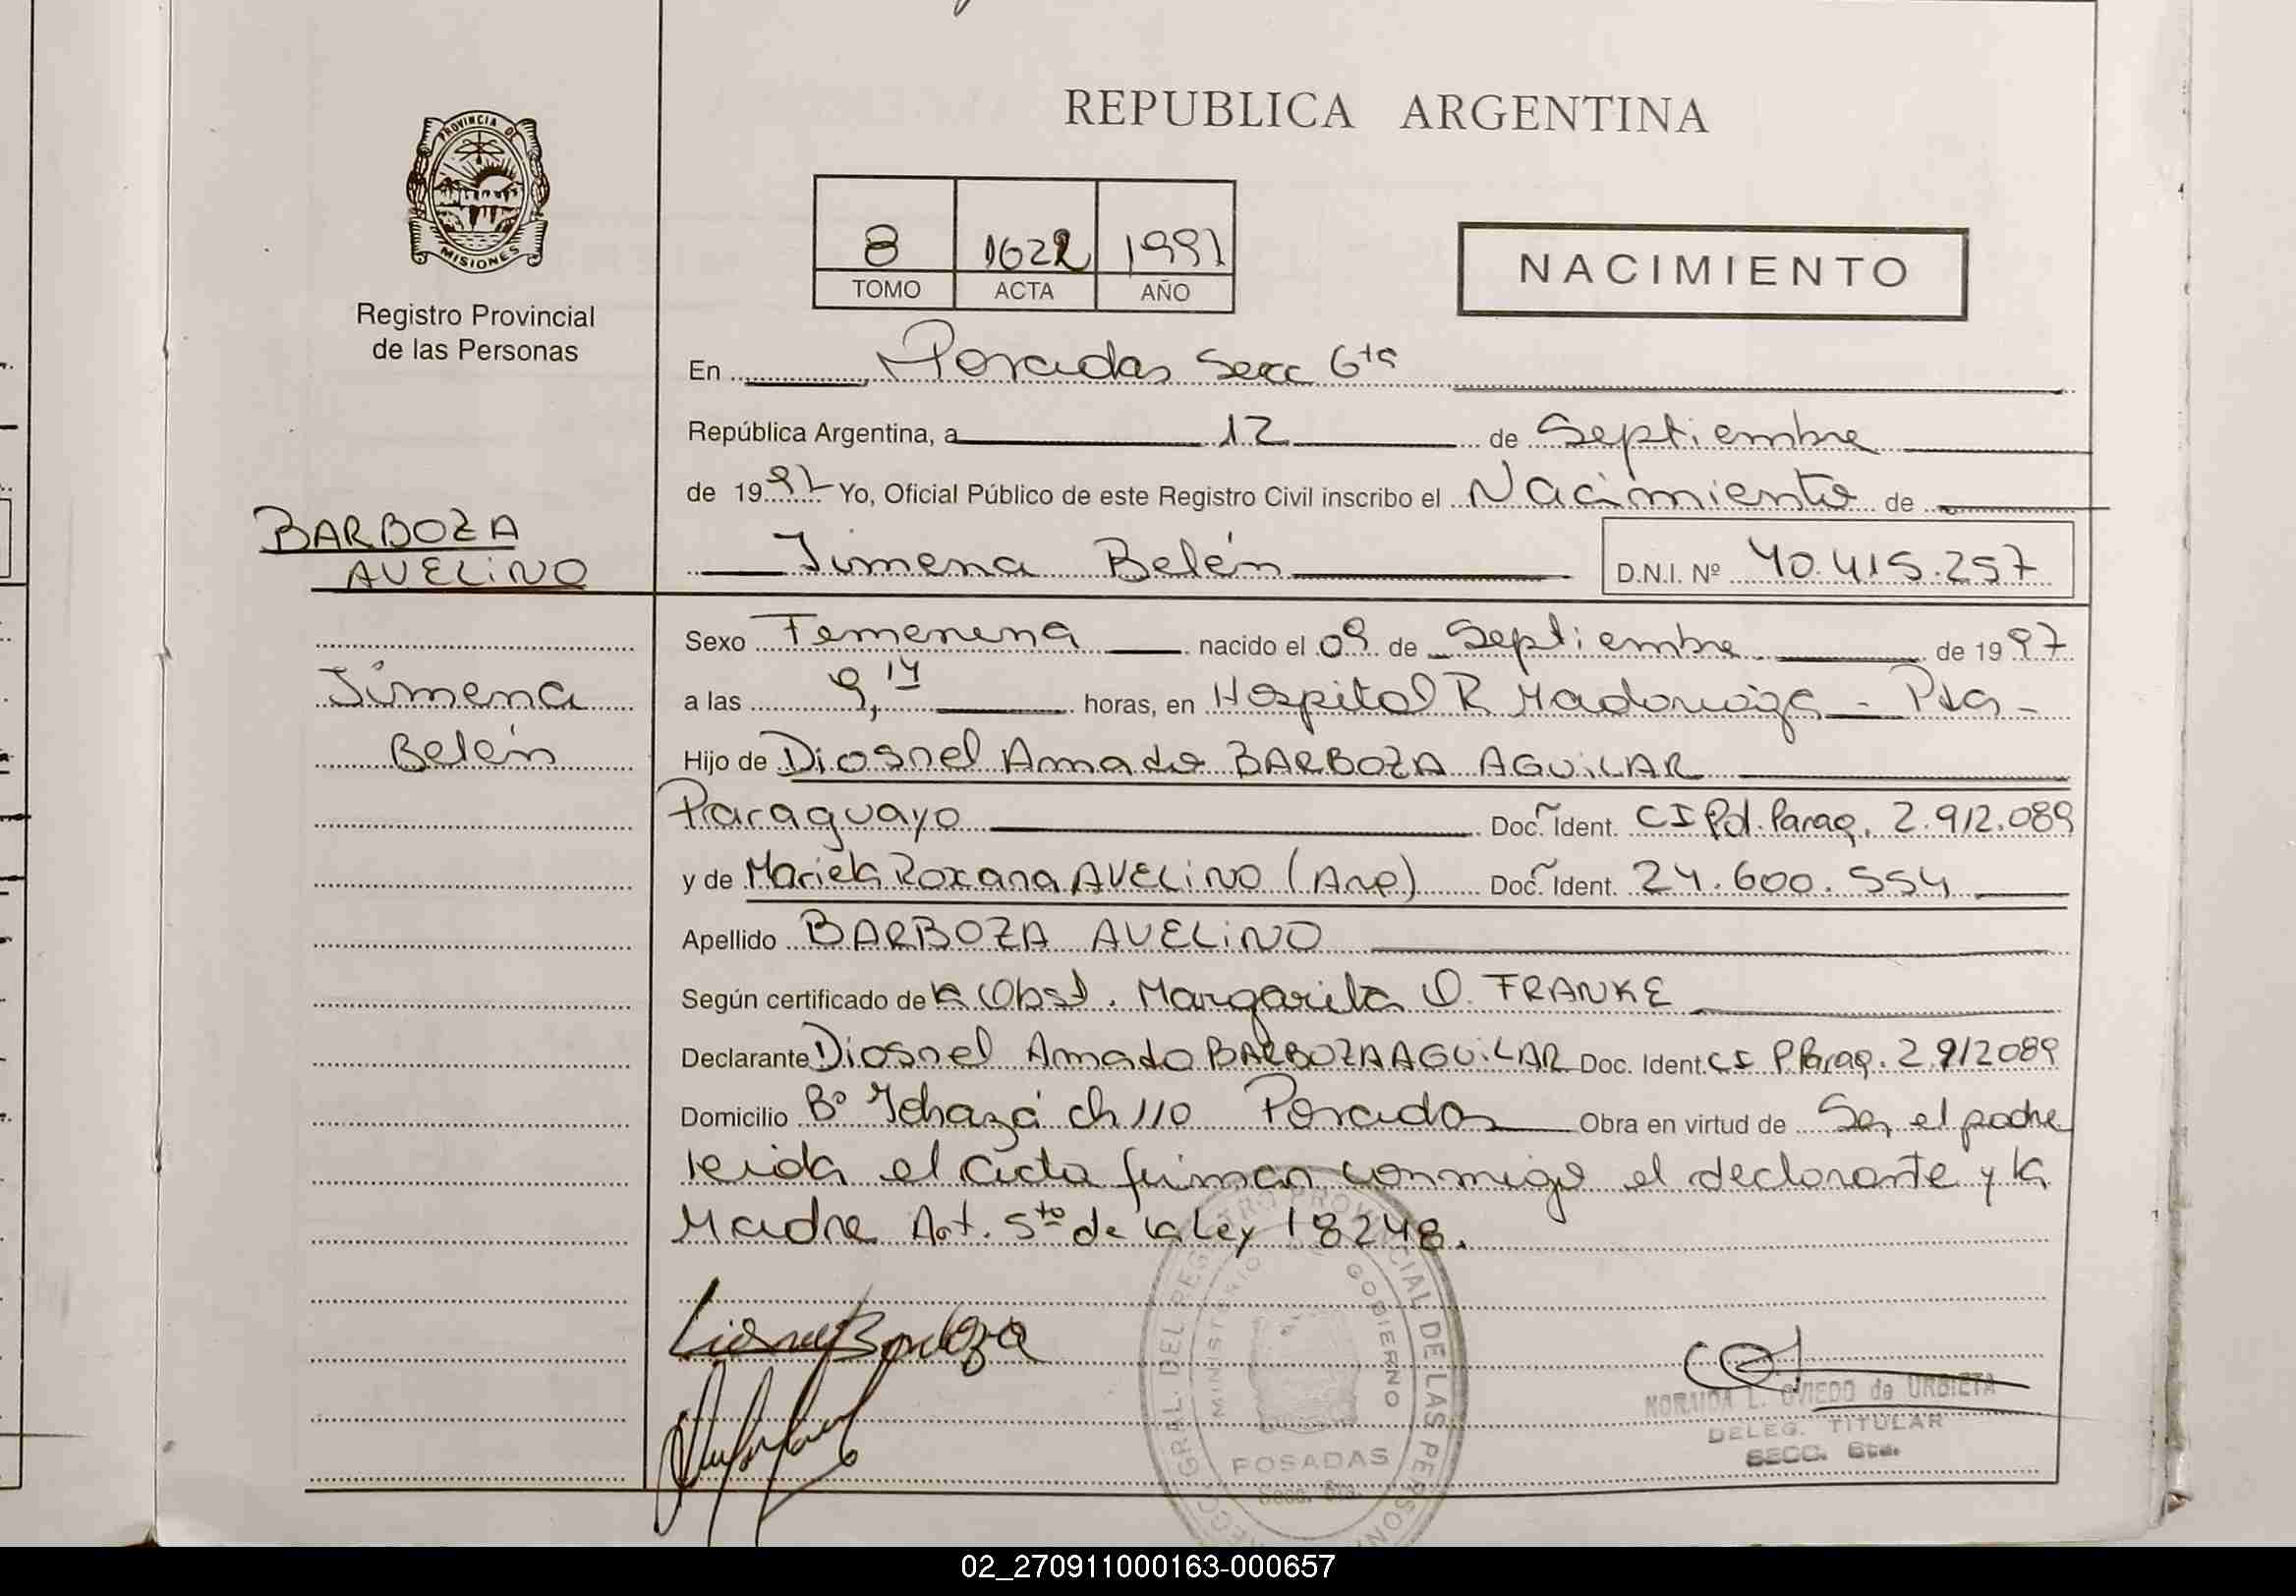 REPUBLICA ARGENTINA
PROVINCIA DE
MISIONES
Registro Provincial
de las Personas
8 1622 1997
TOMO ACTA AÑO
NACIMIENTO
En Posadas Secc 6ta
República Argentina, a 12 de Septiembre
de 1997 Yo, Oficial Público de este Registro Civil inscribo el Nacimiento de
BARBOZA
AVELINO
Jimena Belén D.N.I. Nº 40.415.257
Jimena
Belén
Sexo Femenena nacido el 09 de Septiembre de 1997
a las 9,14 horas, en Hospital R Madariaga - Pdas -
Hijo de Diosnel Amado BARBOZA AGUiLAR
Paraguayo Doc. Ident. CI Pol. Parag. 2.912.089
y de Mariela Roxana AVELiNO (Arg) Doc. Ident. 24.600.554
Apellido BARBOZA AVELiNO
Según certificado de la Obst. Margarita O. FRANKE
Declarante Diosnel Amado BARBOZA AGUiLAR Doc. Ident. CI P Parag. 2.912089
Domicilio Bº Ch 110 Posadas Obra en virtud de Ser el padre
leida el acta firman conmigo el declarante y la
Madre Art. 5to de la Ley 18248.
REGISTRO PROVINCIAL DE LAS PERSONAS
MINISTERIO GOBIERNO
POSADAS
Secc. 6ta.
NORAIDA L. OVIEDO de URBIETA
DELEG. TITULAR
SECC. 6ta.
02_270911000163-000657